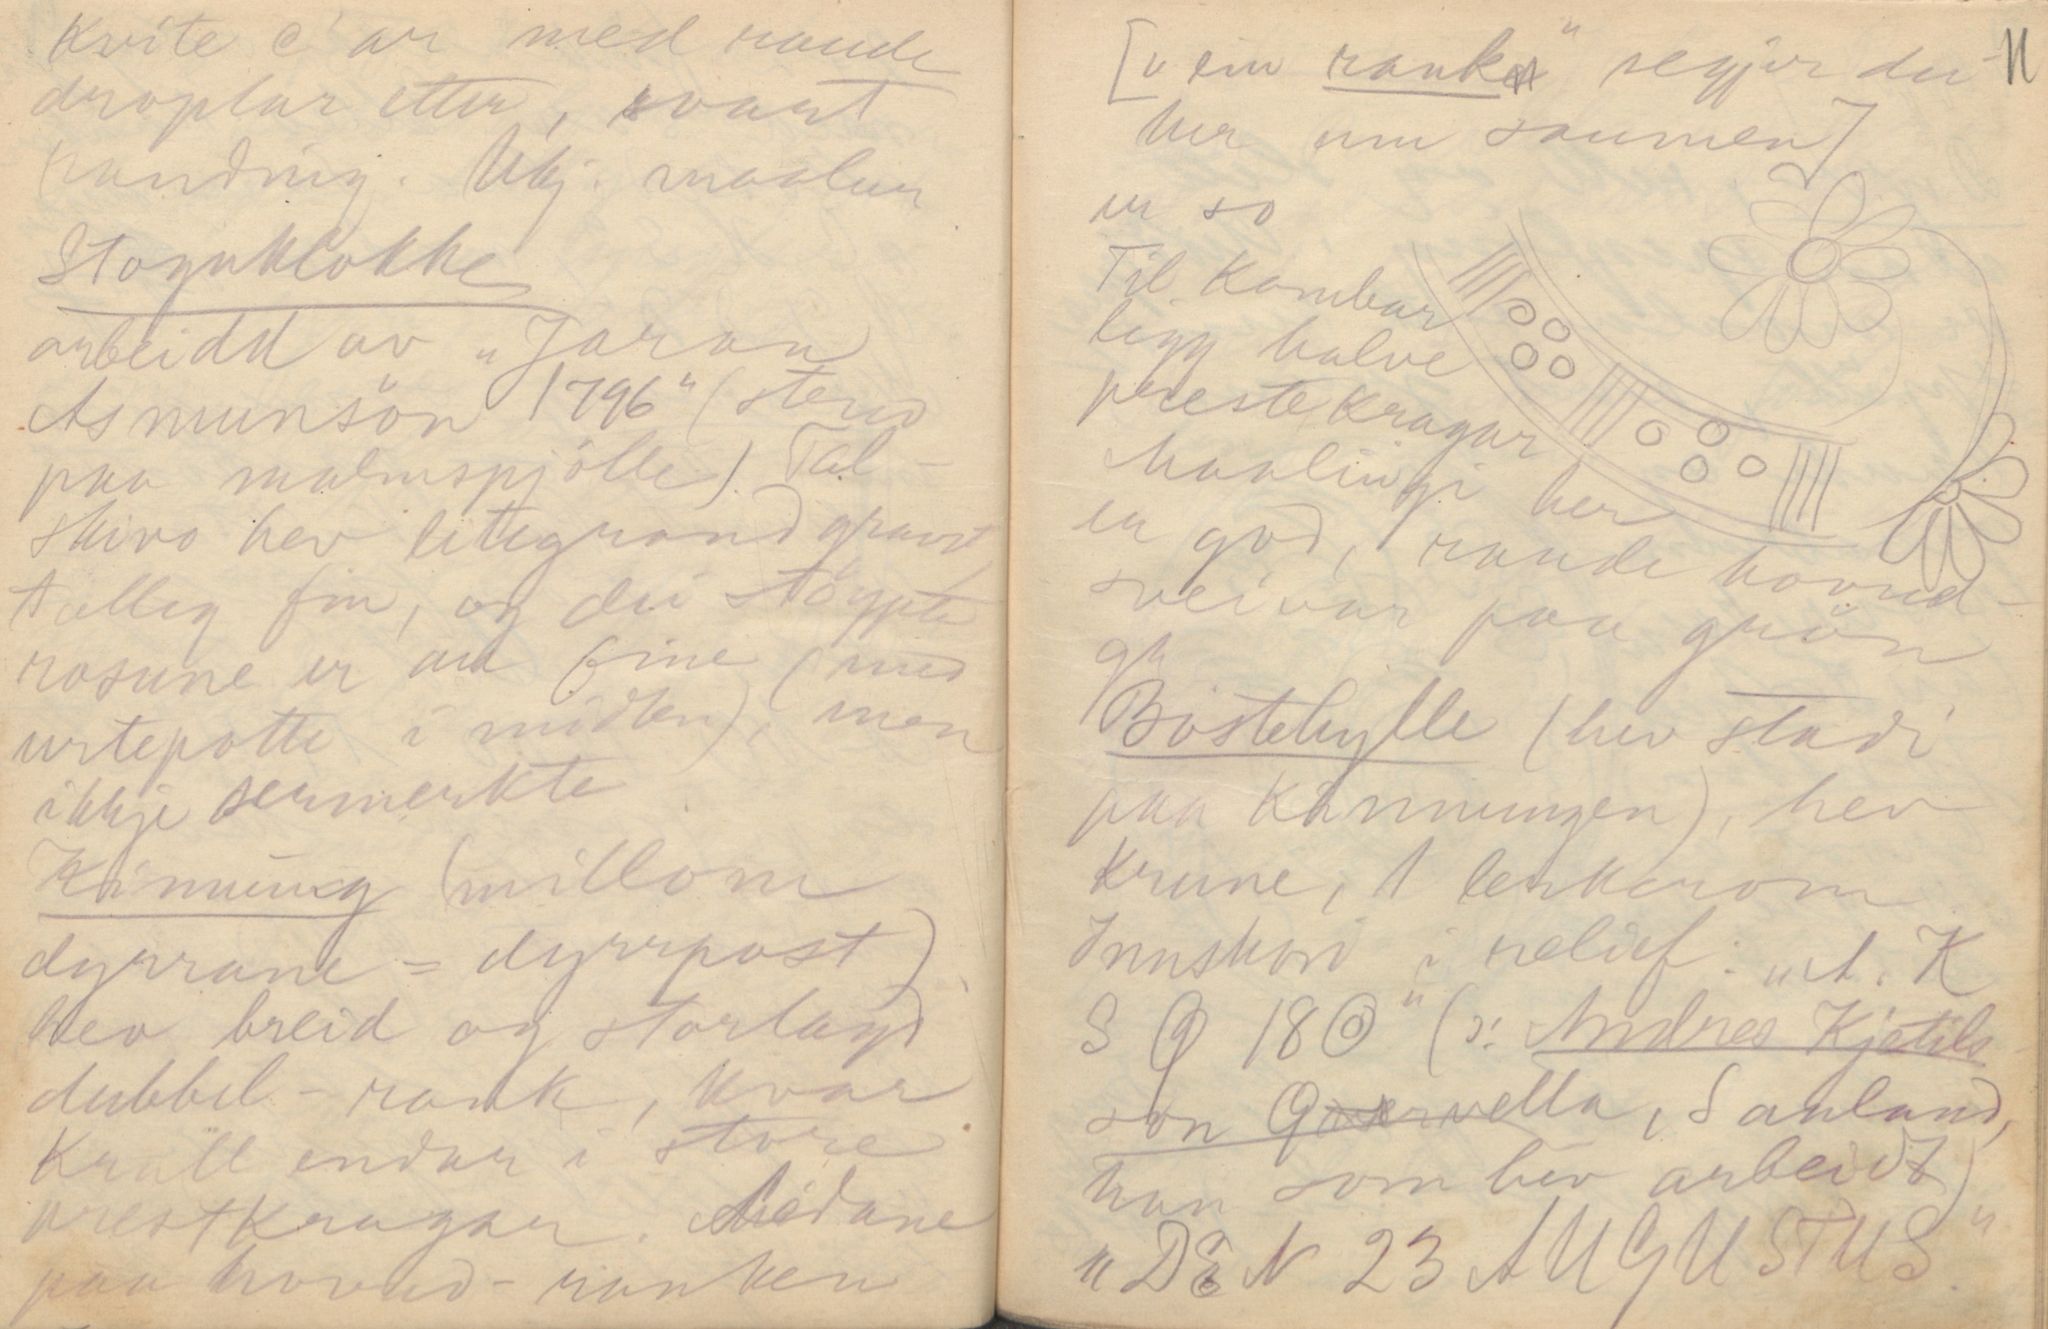 kvite c'ar med raude
droplar etter, svart
panding. Ukj. maalar
Stoguklokke
arbeidd av „Jaran
Asmunsön 1796" (stend
paa malmspjölle). Tal-
skivo hev litegrand gravst
talleg fin, og dei stöypte
rosune er au fine (med
urtepotte i midten), men
ikkje sermerkte
Kinnung (millom
dyrrane = dyrrpost)
hev breid og storlagd
dubbel-rank, kvar
krull endar i store
prestkragar. Sidune
paa hovud-ranken
11
[„ein rank" segjer dei
her um saumen]
er so
Til kambar
ligg halve
prestekragar
Maalingi her
er god, raude hovud-
sveivar paa grön
gr
Böstehylle (hev stadi
paa Kinnungen), hev
krune, 1 lenkerom
Innskori i relief: „A. K
S Q 18 0" (ɔ: Andres Kjetils
son Qvervella, Sauland,
han som hev arbeidt)
„DEN 23 AUGUSTUS"